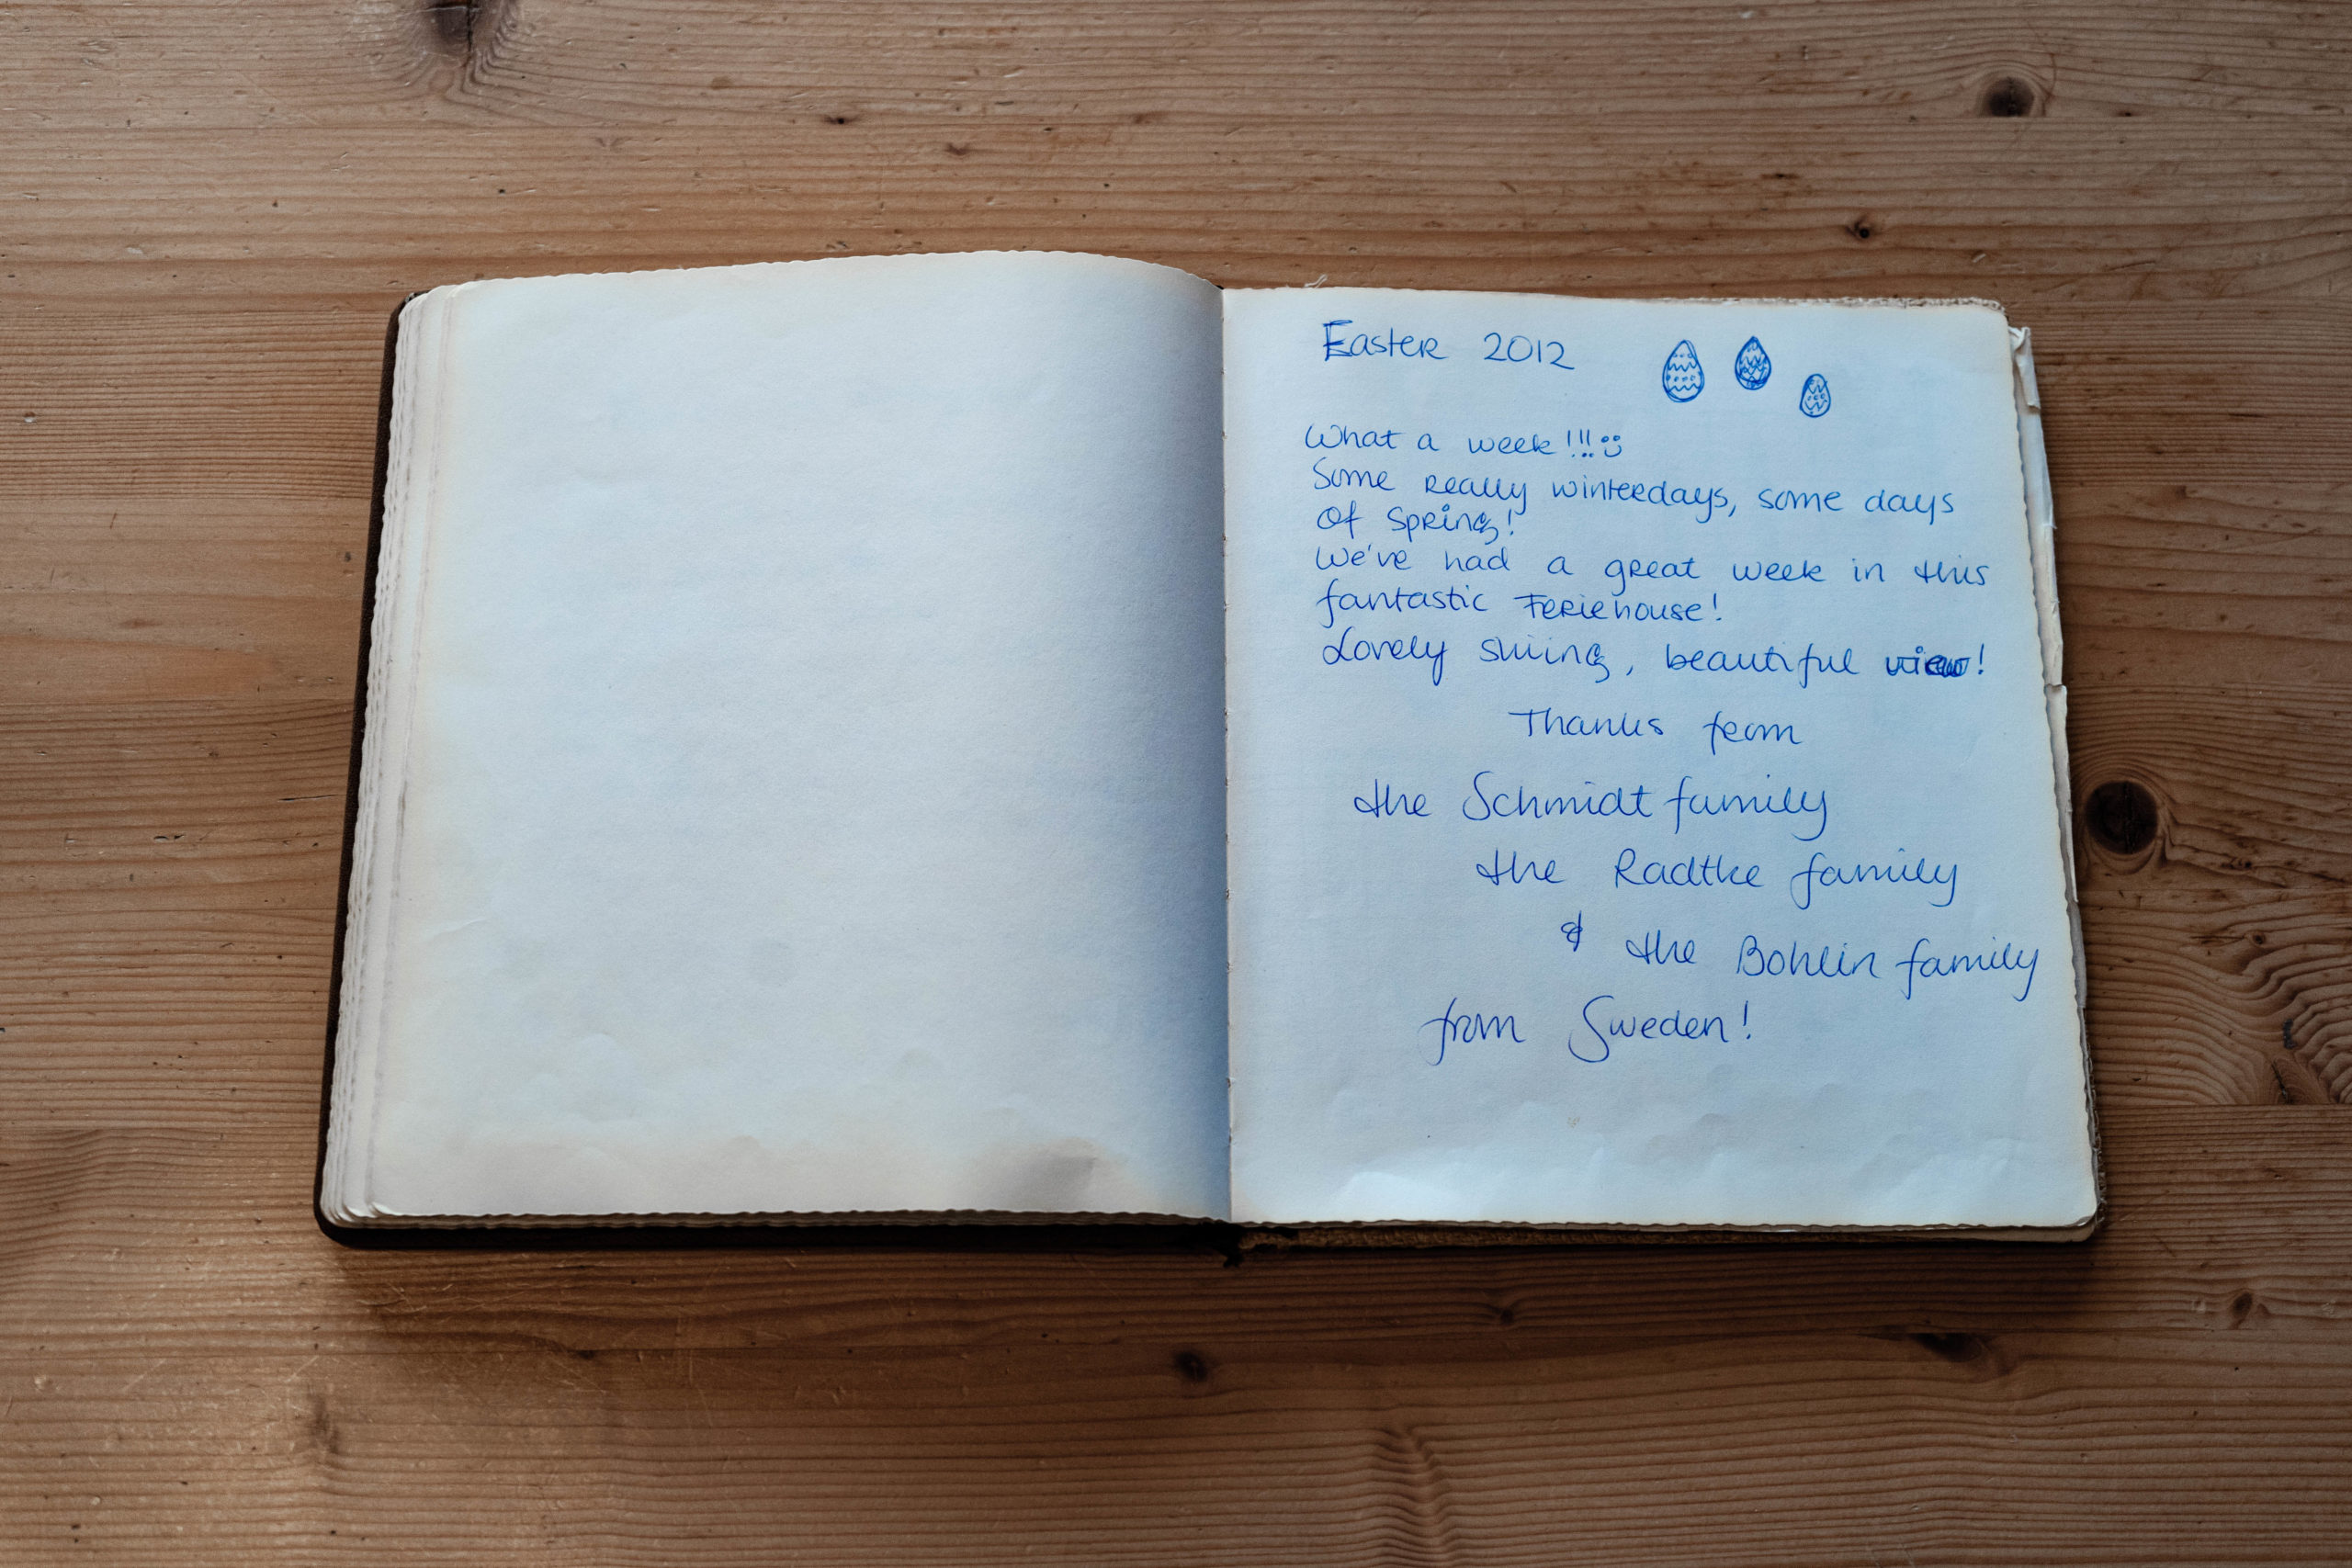 Easter 2012
What a week!!! :)
Some really winterdays, some days
of spring!
We've had a great week in this
fantastic Feriehouse!
Lovely skiing, beautiful view!
Thanks from
the Schmidt family
the Radtke family
& the Bohlin family
from Sweden!